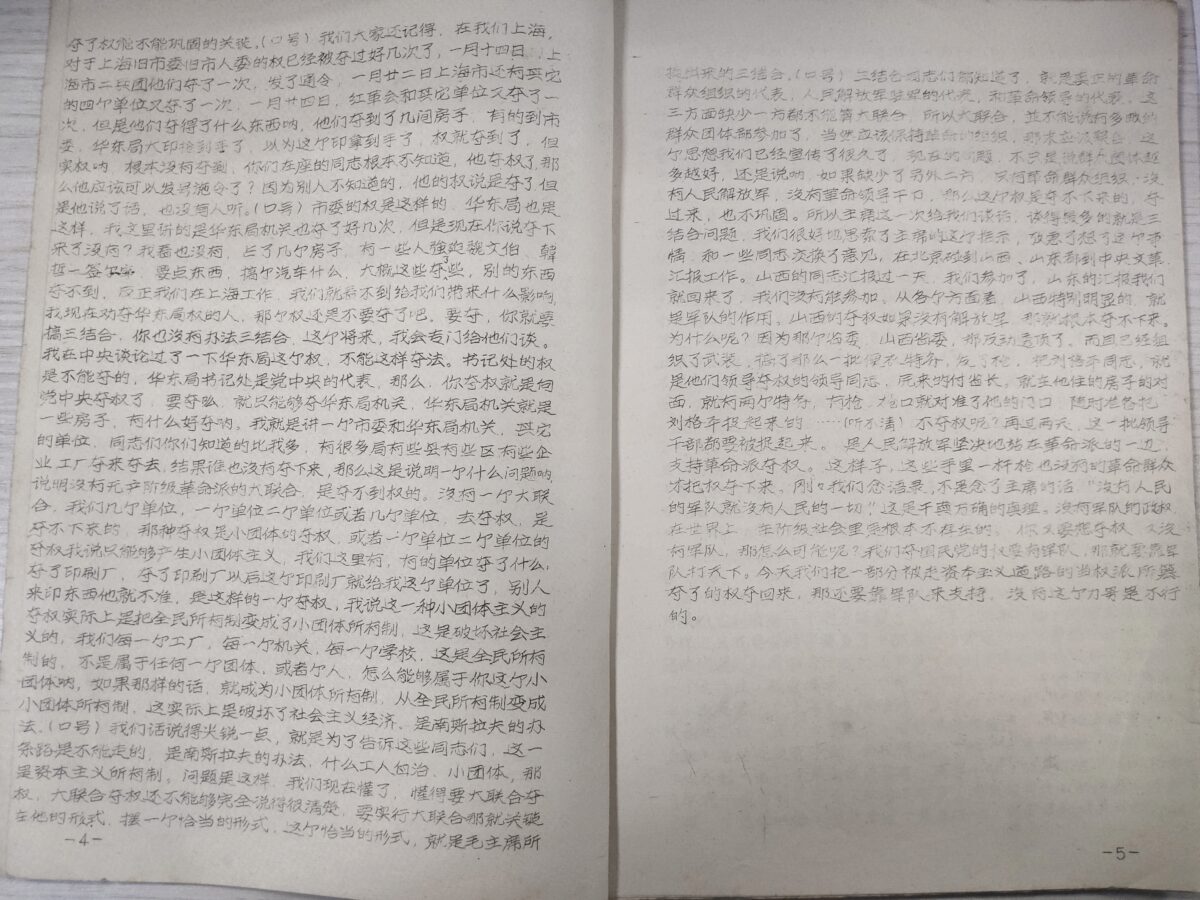 夺了权能不能巩固的关键。(口号)我们大家还记得，在我们上海，
对于上海旧市委旧市人委的权已经被夺过好几次了，一月十四日、上
海市二兵团他们夺了一次，发了通令，一月廿二日上海市还有其它
的四个单位又夺了一次，一月廿四日，红革会和其它单位又夺了一
次，但是他们夺得了什么东西呐，他们夺到了几间房子，有的到市
委，华东局大印抢到手了，以为这个印拿到手了，权就夺到了，但
实权呐，根本没有夺到，你们在座的同志根本不知道，他夺权了，那
么他应该可以发号施令了？因为别人不知道的，他的权说是夺了，但
是他说了话，也没有人听。(口号)市委的权是这样的，华东局也是
这样，我这里讲的是华东局机关也夺了好几次，但是现在你说夺下
来了没有？我看也没有，占了几个房子，有一些人强迫魏文伯、韩
哲一签个字，要点东西，搞个汽车什么，大概这些夺些，别的东西
夺不到，反正我们在上海工作，我们就看不到给我们带来什么影响，
我现在劝夺华东局权的人，那个权还是不要夺了吧，要夺，你就要
搞三结合，你也没有办法三结合，这个将来，我会专门给他们谈。
我在中央谈论过了一下华东局这个权，不能这样夺法。书记处的权
是不能夺的，华东局书记处是党中央的代表，那么，你夺权就是向
党中央夺权了，要夺么，就只能够夺华东局机关，华东局机关就是
一些房子，有什么好夺呐。我就是讲一个市委和华东局机关，其它
的单位，同志们你们知道的比我多，有很多局有些县有些区有些企
业工厂夺来夺去，结果谁也没有夺下来，那么这是说明一个什么问题呐，
说明没有无产阶级革命派的大联合，是夺不到权的。没有一个大联
合，我们几个单位，一个单位二个单位或者几个单位，去夺权，是
夺不下来的，那种夺权是小团体的夺权，或者一个单位二个单位的
夺权我说只能够产生小团体主义，我们这里有，有的单位夺了什么，
夺了印刷厂，夺了印刷厂以后这个印刷厂就给我这个单位了，别人
来印东西他就不准，是这样的一个夺权，我说这一种小团体主义的
夺权实际上是把全民所有制变成了小团体所有制，这是破坏社会主
义的，我们每一个工厂，每一个机关，每一个学校，这是全民所有
制的，不是属于任何一个团体，或者个人，怎么能够属于你这个小
团体呐，如果那样的话，就成为小团体所有制，从全民所有制变成
小团体所有制，这实际上是破坏了社会主义经济、是南斯拉夫的办
法。(口号)我们话说得尖锐一点，就是为了告诉这些同志们，这一
条路是不能走的，是南斯拉夫的办法，什么工人自治，小团体，那
是资本主义所有制。问题是这样，我们现在懂了，懂得要大联合夺
权，大联合夺权还不能够完全说得很清楚，要实行大联合那就关键
在他的形式，摆一个恰当的形式，这个恰当的形式，就是毛主席所
－4－
提出来的三结合。(口号)三结合同志们都知道了，就是真正的革命
群众组织的代表，人民解放军驻军的代表，和革命领导的代表，这
三方面缺少一方都不能算大联合，所以大联合，并不能说有多数的
群众团体都参加了，当然应该保持革命的组织，那末应该联合，这
个思想我们已经宣传了很久了，现在的问题，不只是说群众团体越
多越好，还是说呐，如果缺少了另外二方，只有革命群众组织，没
有人民解放军，没有革命领导干部，那么这个权是夺不下来的，夺
过来，也不巩固。所以主席这一次给我们谈话，谈得很多的就是三
结合问题，我们很好地思索了主席的这个指示，反复了想了这个事
情，和一些同志交换了意见，在北京碰到山西、山东都到中央文革
汇报工作。山西的同志汇报过一天，我们参加了，山东的汇报我们
就回来了，我们没有能参加、从各个方面看，山西特别明显的，就
是军队的作用。山西的夺权如果没有解放军，那就根本夺不下来。
为什么呢？因为那个省委，山西省委，那反动透顶了。而且已经组
织了武装，搞了那么一批便衣特务，发了枪，把刘格平同志，就
是他们领导夺权的领导同志，原来的付省长，就在他住的房子的对
面，就有两个特务，有枪，枪口就对准了他的门口，随时准备把
刘格平报起来的……(听不清)不夺权呢？再过两天，这一批领导
干部都要被捉起来。是人民解放军坚决地站在革命派的一边，
支持革命派夺权。这样子，这些手里一杆枪也没有的革命群众
才把权夺下来。刚々我们念语录，不是念了主席的话"没有人民
的军队就没有人民的一切！"这是千真万确的真理。没有军队的政权
在世界上，在阶级社会里是根本不存在的，你又要想夺权，又没
有军队，那怎么可能呢？我们夺国民党的权要有军队，那就要靠军
队打天下。今天我们把一部分被走资本主义道路的当权派所篡
夺了的权夺回来，那还要靠军队来支持，没有这个力量是不行
的。
－5－